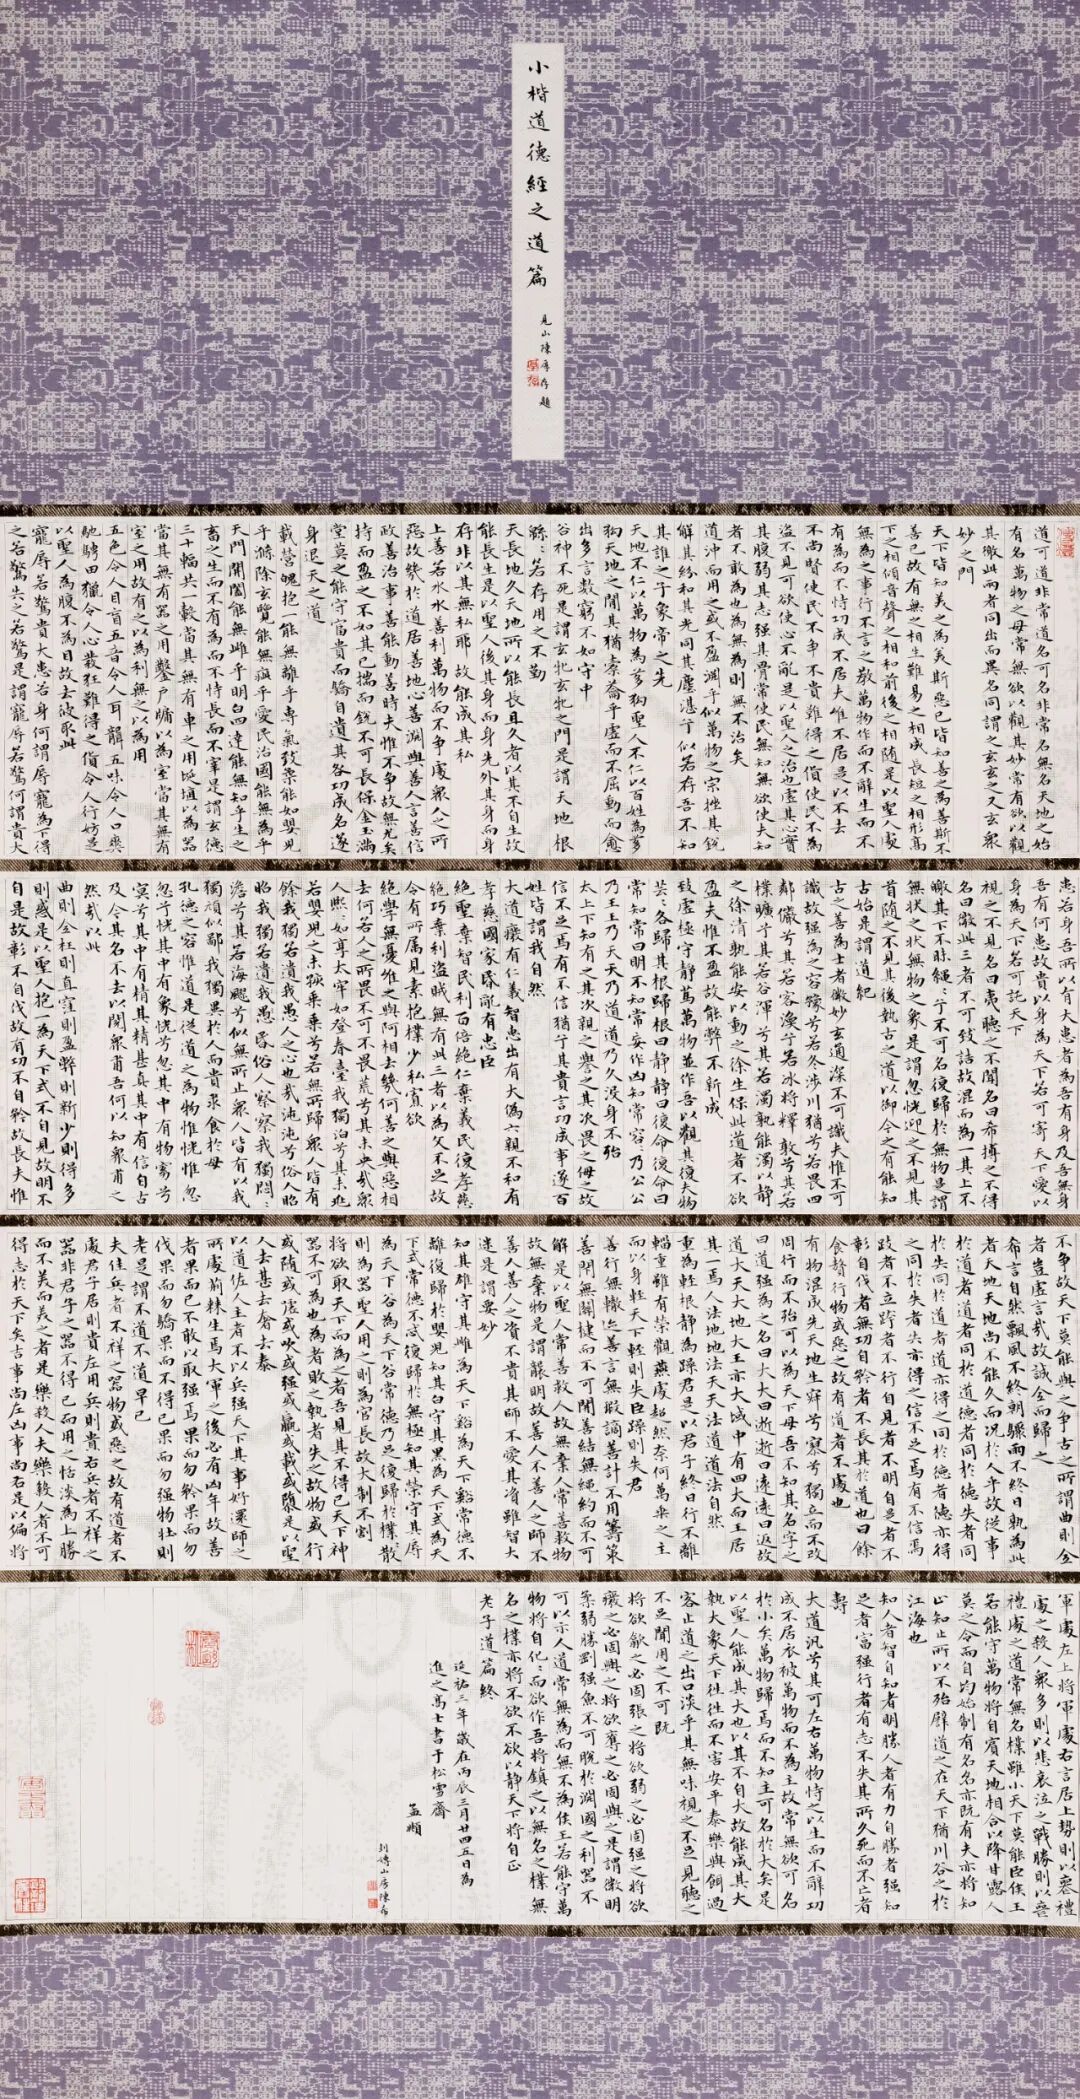 小楷道德經之道篇
見山陳序存題
道可道非常道名可名非常名無名天地之始
有名萬物之母常無欲以觀其妙常有欲以觀
其徼此兩者同出而異名同謂之玄玄之又玄衆
妙之門
天下皆知美之為美斯惡已皆知善之為善斯不
善已故有無之相生難易之相成長短之相形高
下之相傾音聲之相和前後之相隨是以聖人處
無為之事行不言之教萬物作而不辭生而不
有為而不恃功成不居夫惟不居是以不去
不尚賢使民不爭不貴難得之貨使民不為
盜不見可欲使心不亂是以聖人之治也虛其心實
其腹弱其志强其骨常使民無知無欲使夫知
者不敢為也為無為則無不治矣
道沖而用之或不盈淵乎似萬物之宗挫其銳
解其紛和其光同其塵湛乎似若存吾不知
其誰之子象帝之先
天地不仁以萬物為芻狗聖人不仁以百姓為芻
狗天地之間其猶橐籥乎虛而不屈動而愈
出多言數窮不如守中
谷神不死是謂玄牝玄牝之門是謂天地根
緜緜若存用之不勤
天長地久天地所以能長且久者以其不自生故
能長生是以聖人後其身而身先外其身而身
存非以其無私耶故能成其私
上善若水水善利萬物而不爭處衆人之所
惡故幾於道居善地心善淵與善人言善信
政善治事善能動善時夫惟不爭故無尤矣
持而盈之不如其已揣而銳不可長保金玉滿
堂莫之能守富貴而驕自遺其咎功成名遂
身退天之道
載營魄抱一能無離乎專氣致柔能如嬰兒
乎滌除玄覽能無疵乎愛民治國能無為乎
天門開闔能無雌乎明白四達能無知乎生之
畜之生而不有為而不恃長而不宰是謂玄德
三十輻共一轂當其無有車之用埏埴以為器
當其無有器之用鑿戶牖以為室當其無有
室之用故有之以為利無之以為用
五色令人目盲五音令人耳聾五味令人口爽
馳騁田獵令人心發狂難得之貨令人行妨是
以聖人為腹不為目故去彼取此
寵辱若驚貴大患若身何謂辱寵為下得
之若驚失之若驚是謂寵辱若驚何謂貴大
患若身吾所以有大患者為吾有身及吾無身
吾有何患故貴以身為天下若可寄天下愛以
身為天下若可託天下
視之不見名曰夷聽之不聞名曰希搏之不得
名曰微此三者不可致詰故混而為一其上不
皦其下不昧繩繩兮不可名復歸於無物是謂
無狀之狀無物之象是謂忽恍迎之不見其
首隨之不見其後執古之道以御今之有能知
古始是謂道紀
古之善為士者微妙玄通深不可識夫惟不可
識故强為之容豫兮若冬涉川猶兮若畏四
鄰儼兮其若容渙兮若冰將釋敦兮其若
樸曠兮其若谷渾兮其若濁孰能濁以靜
之徐清孰能安以動之徐生保此道者不欲
盈夫惟不盈故能弊不新成
致虛極守靜篤萬物並作吾以觀其復夫物
芸芸各歸其根歸根曰靜靜曰復命復命曰
常知常曰明不知常妄作凶知常容容乃公公
乃王王乃天天乃道道乃久沒身不殆
太上下知有之其次親之譽之其次畏之侮之故
信不足焉有不信猶兮其貴言功成事遂百
姓皆謂我自然
大道癈有仁義智惠出有大偽六親不和有
孝慈國家昏亂有忠臣
絕聖棄智民利百倍絕仁棄義民復孝慈
絕巧棄利盜賊無有此三者以為文不足故
令有所屬見素抱樸少私寡欲
絕學無憂唯之與阿相去幾何善之與惡相
去何若人之所畏不可不畏荒兮其未央哉衆
人熙熙如享太牢如登春臺我獨泊兮其未兆
若嬰兒之未孩乘乘兮若無所歸衆人皆有
餘我獨若遺我愚人之心也哉沌沌兮俗人昭
昭我獨若昏俗人察察我獨悶悶
澹兮其若海飂兮似無所止衆人皆有以我
獨頑似鄙我獨異於人而貴求食於母
孔德之容惟道是從道之為物惟恍惟忽
忽兮恍其中有象恍兮忽其中有物窈兮
冥兮其中有精其精甚真其中有信自古
及今其名不去以閱衆甫吾何以知衆甫之
然哉以此
曲則全枉則直窪則盈弊則新少則得多
則惑是以聖人抱一為天下式不自見故明不
自是故彰不自伐故有功不自矜故長夫惟
不爭故天下莫能與之爭古之所謂曲則全
者豈虛言哉故誠全而歸之
希言自然飄風不終朝驟雨不終日孰為此
者天地天地尚不能久而況於人乎故從事
於道者道者同於道德者同於德失者同
於失同於道者道亦得之同於德者德亦得
之同於失者失亦得之信不足焉有不信焉
跂者不立跨者不行自見者不明自是者不
彰自伐者無功自矜者不長其於道也曰餘
食贅行物或惡之故有道者不處也
有物混成先天地生寂兮寥兮獨立而不改
周行而不殆可以為天下母吾不知其名字之
曰道强為之名曰大大曰逝逝曰遠遠曰返故
道大天大地大王亦大域中有四大而王居
其一焉人法地地法天天法道道法自然
重為輕根靜為躁君是以君子終日行不離
輜重雖有榮觀燕處超然奈何萬乘之主
而以身輕天下輕則失臣躁則失君
善行無轍迹善言無瑕謫善計不用籌策
善閉無關楗而不可開善結無繩約而不可
解是以聖人常善救人故無棄人常善救物
故無棄物是謂襲明故善人不善人之師不
善人善人之資不貴其師不愛其資雖智大
迷是謂要妙
知其雄守其雌為天下谿為天下谿常德不
離復歸於嬰兒知其白守其黑為天下式為天
下式常德不忒復歸於無極知其榮守其辱
為天下谷為天下谷常德乃足復歸於樸樸散
則為器聖人用之則為官長故大制不割
將欲取天下而為之者吾見其不得已天下神
器不可為也為者敗之執者失之故物或行
或隨或呿或吹或强或羸或載或隳是以聖
人去甚去奢去泰
以道佐人主者不以兵强天下其事好還師之
所處荊棘生焉大軍之後必有凶年故善
者果而已不敢以取强焉果而勿矜果而勿
伐果而勿驕果而不得已果而勿强物壯則
老是謂不道不道早已
夫佳兵者不祥之器物或惡之故有道者不
處君子居則貴左用兵則貴右兵者不祥之
器非君子之器不得已而用之恬淡為上勝
而不美而美之者是樂殺人夫樂殺人者不可
得志於天下矣吉事尚左凶事尚右是以偏將
軍處左上將軍處右言居上勢則以喪禮
處之殺人衆多則以悲哀泣之戰勝則以喪
禮處之道常無名樸雖小天下莫能臣侯王
若能守萬物將自賓天地相合以降甘露人
莫之令而自均始制有名名亦既有夫亦將知
止知止所以不殆譬道之在天下猶川谷之於
江海也
知人者智自知者明勝人者有力自勝者强知
足者富强行者有志不失其所久死而不亡者
壽
大道汎兮其可左右萬物恃之以生而不辭功
成不居衣被萬物而不為主故常無欲可名
於小矣萬物歸焉而不知主可名於大矣是
以聖人能成其大也以其不自大故能成其大
執大象天下往往而不害安平泰樂與餌過
客止道之出口淡乎其無味視之不足見聽之
不足聞用之不可既
將欲歙之必固張之將欲弱之必固强之將欲
癈之必固興之將欲奪之必固與之是謂微明
柔弱勝剛强魚不可脫於淵國之利器不
可以示人道常無為而無不為侯王若能守萬
物將自化化而欲作吾將鎮之以無名之樸無
名之樸亦將不欲不欲以靜天下將自正
老子道篇終
延祐三年歲在丙辰三月廿四五日為
進之高士書于松雪齋
孟頫